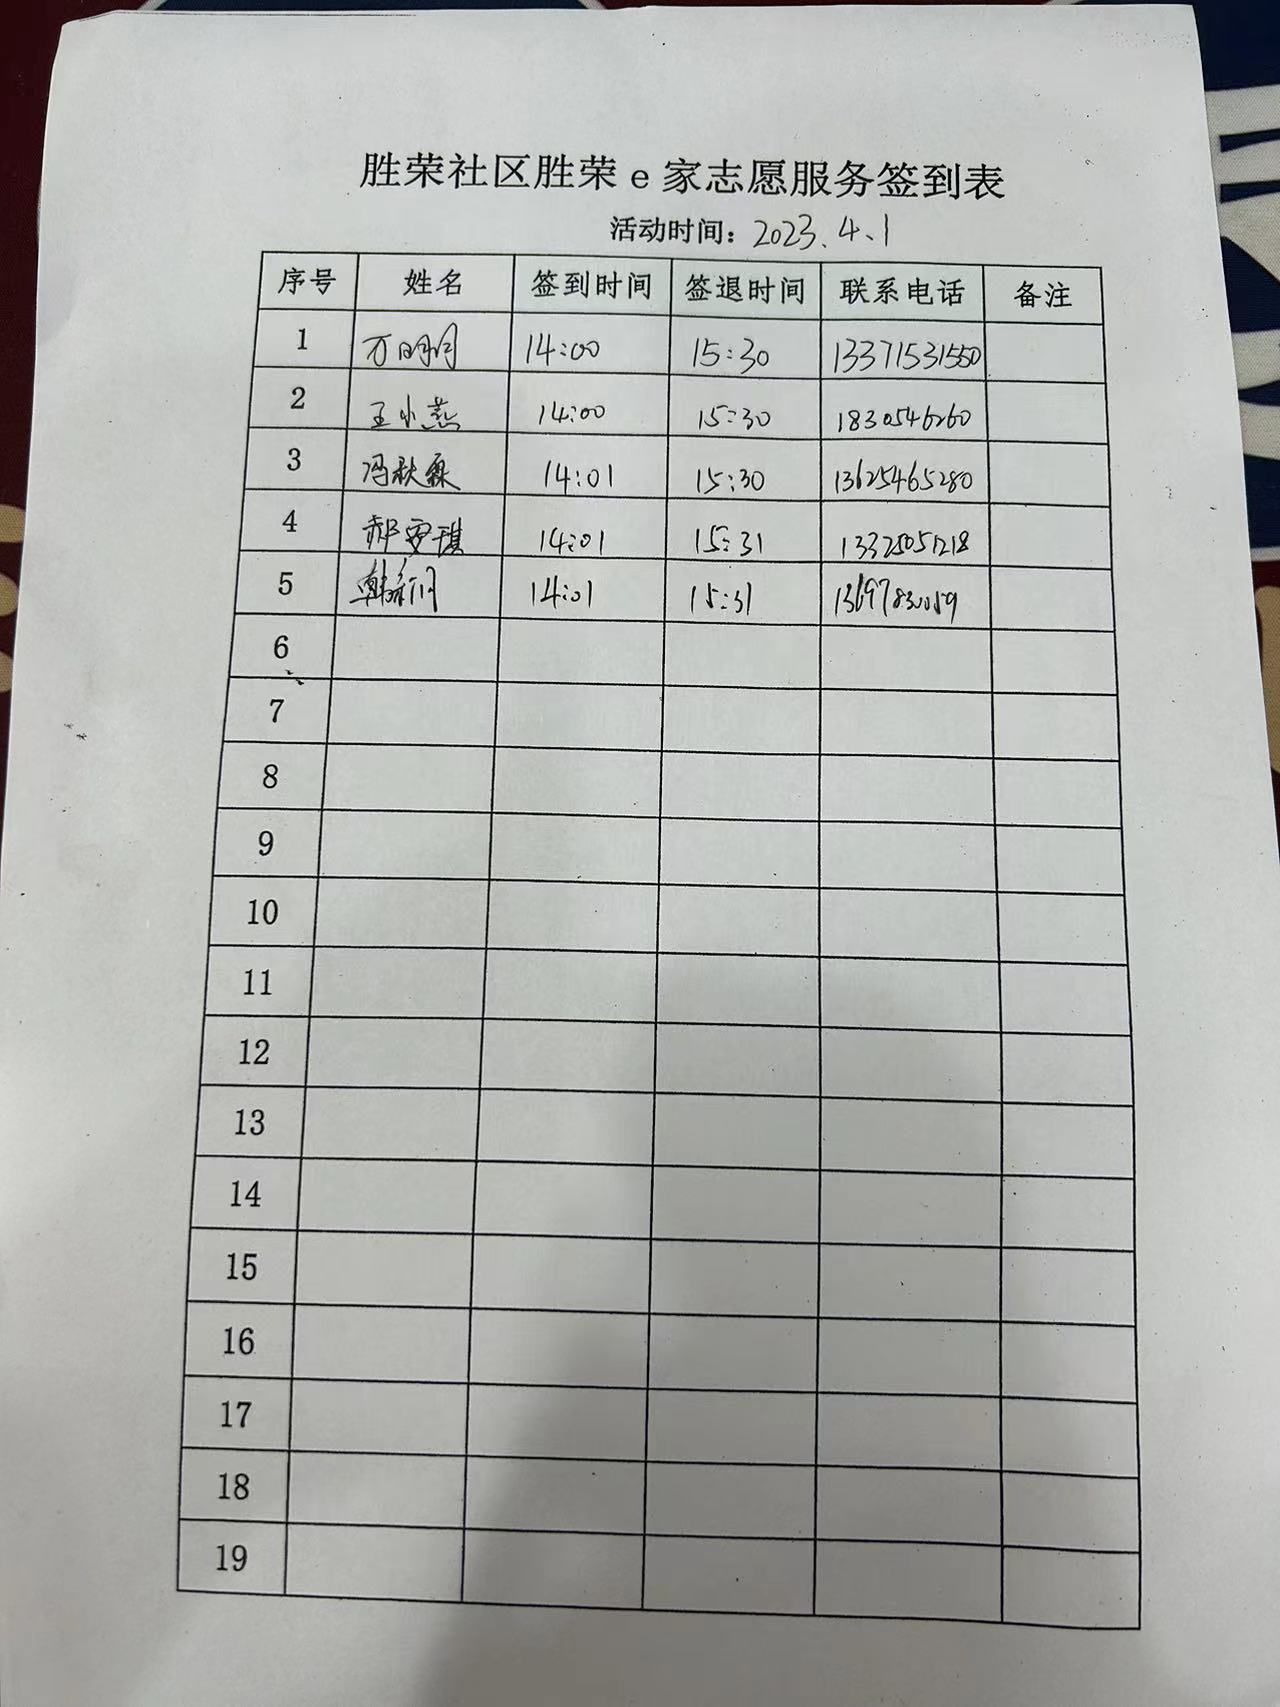 胜荣社区胜荣e家志愿服务签到表
活动时间：2023.4.1
序号 姓名 签到时间 签退时间 联系电话 备注
1 万明月 14:00 15:30 13371531550
2 王小燕 14:00 15:30 1830546260
3 冯秋霖 14:01 15:30 13625465280
4 郝安琪 14:01 15:31 13325051218
5 14:01 15:31
6
7
8
9
10
11
12
13
14
15
16
17
18
19